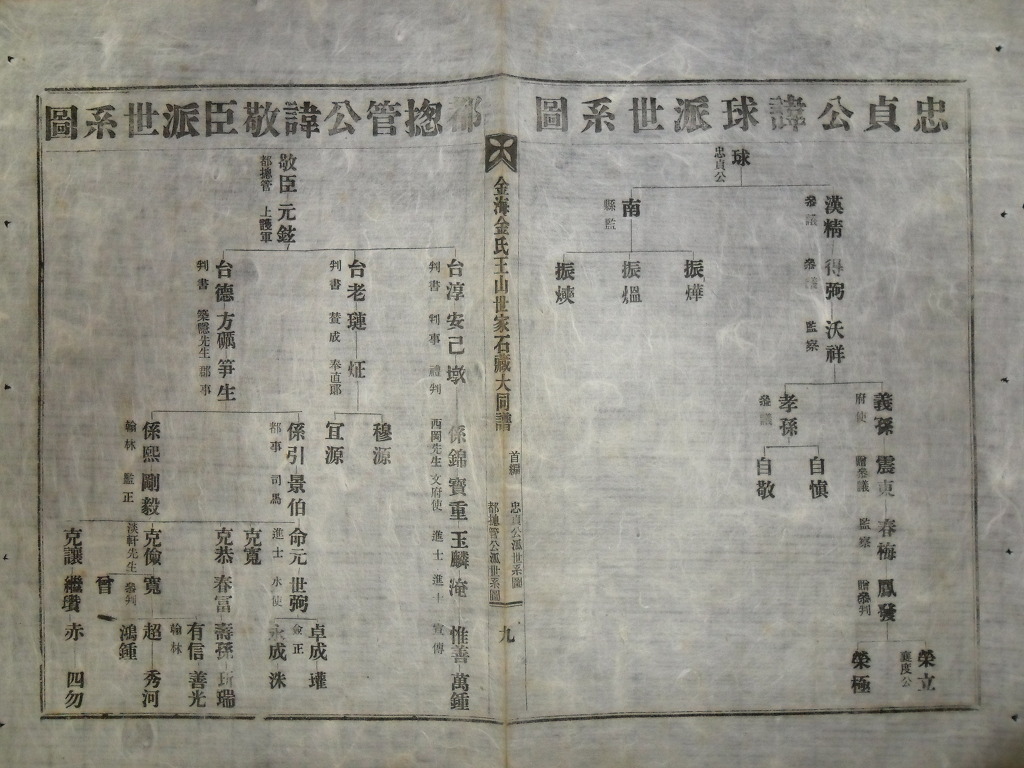 忠貞公諱球派世系圖
球
忠貞公
漢精
得弼
沃祥
監察
南
縣監
振燁
振熅
振
義孫
府使
震東
贈參議
春梅
監察
鳳發
贈參判
榮立
襄度公
榮極
孝孫
參議
自慎
自敬
金海金氏王山世家石藏大同譜
首編
忠貞公派世系圖
都摠管公派世系圖
九
都摠管公諱敬臣派世系圖
敬臣
都摠管
元鉉
上護軍
台淳
判書
安己
判事
墩
禮判
係錦
西岡先生
文府使
寶重
玉麟
進士
淹
進士
惟善
宣傳
萬鍾
台老
判書
璉
贊成
奉直郎
穆源
宜源
台德
判書
方礪
築隱先生
爭生
郡事
係引
都事
景伯
司馬
命元
進士
世弼
水使
卓成
瓘
永成
洙
係熙
翰林
剛毅
監正
克寬
克恭
春富
壽孫
有信
翰林
善光
克儉
淡軒先生
寬
參判
超
秀河
曾
鴻鍾
克讓
赤
四勿